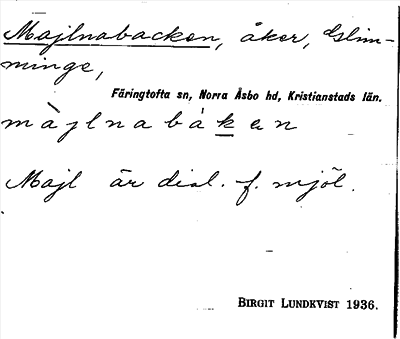 Majlnabacken, åker, Glim-
minge,
Färingtofta sn, Norra Åsbo hd, Kristianstads län.
màjlnabákan
Majl är dial. f. mjöl.
BIRGIT LUNDKVIST 1936.